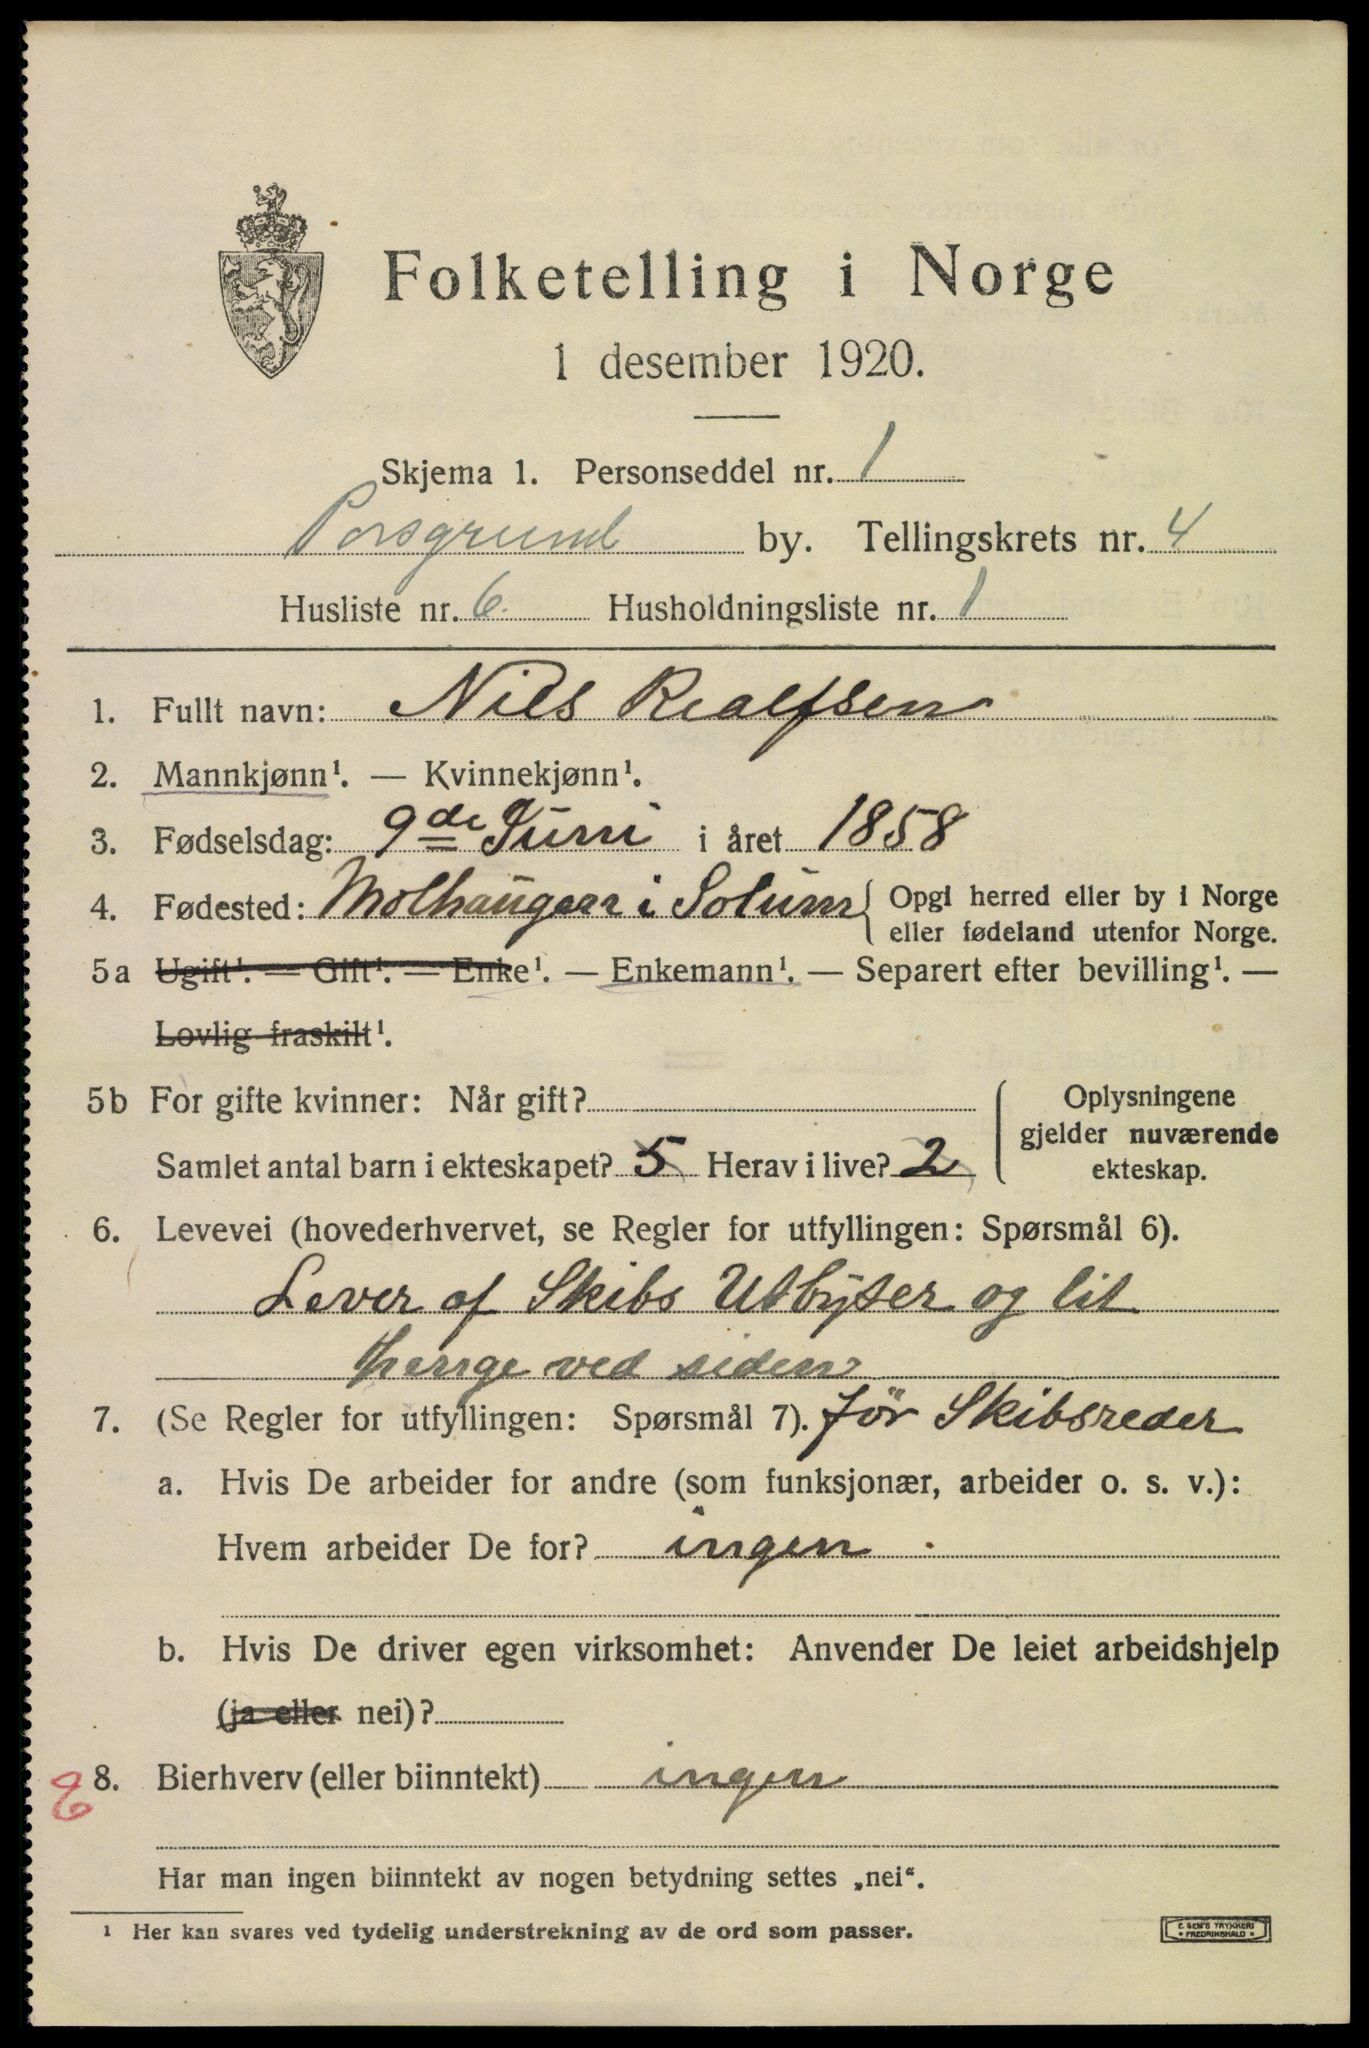 Folketelling i Norge
1 desember 1920.
Skjema 1. Personseddel nr. 1
Porsgrund by. Tellingskrets nr. 4
Husliste nr. 6. Husholdningsliste nr. 1
1. Fullt navn: Nils Realfsen
2. Mannkjønn¹. — Kvinnekjønn¹.
3. Fødselsdag: 9de Juni i året 1858
4. Fødested: Molhaugen i Solum { Opgi herred eller by i Norge
eller fødeland utenfor Norge.
5a Ugift¹. — Gift¹. — Enke¹. — Enkemann¹. — Separert efter bevilling¹. —
Lovlig fraskilt¹.
5b For gifte kvinner: Når gift?
Samlet antal barn i ekteskapet? 5 Herav i live? 2
Oplysningene
gjelder nuværende
ekteskap.
6. Levevei (hovederhvervet, se Regler for utfyllingen: Spørsmål 6).
Lever af Skibs Utbyter og lit
henge ved siden
7. (Se Regler for utfyllingen: Spørsmål 7). før Skibsreder
a. Hvis De arbeider for andre (som funksjonær, arbeider o. s. v.):
Hvem arbeider De for? ingen
b. Hvis De driver egen virksomhet: Anvender De leiet arbeidshjelp
(ja eller nei)?
8. Bierhverv (eller biinntekt) ingen
Har man ingen biinntekt av nogen betydning settes „nei“.
¹ Her kan svares ved tydelig understrekning av de ord som passer.
E. SEM'S TRYKKERI
FREDRIKSHALD